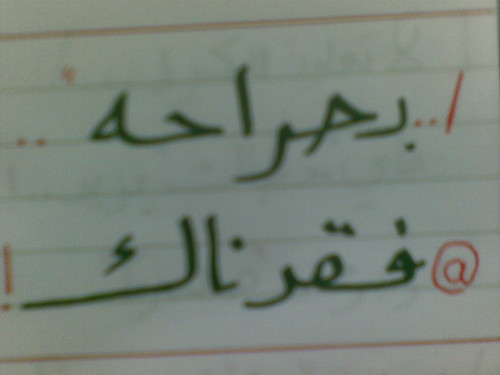 /.. بصراحه ..
@ فقرناك !